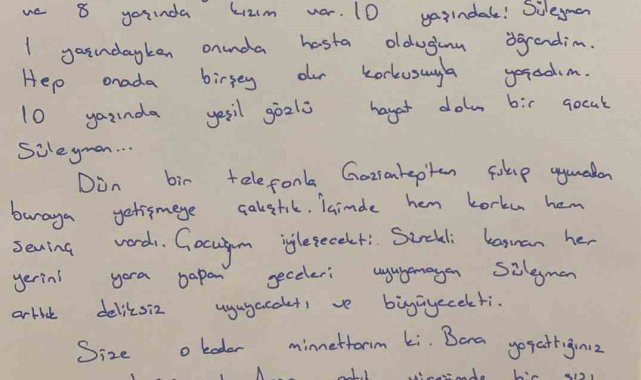 ve 8 yaşında kızım var. 10 yaşındaki Süleyman
1 yaşındayken onunda hasta olduğunu öğrendim.
Hep onada birşey olur korkusuyla yaşadım.
10 yaşında yeşil gözlü hayat dolu bir çocuk
Süleyman...
Dün bir telefonla Gaziantep'ten çıkıp uyumadan
buraya yetişmeye çalıştık. İçimde hem korku hem
sevinç vardı. Çocuğum iyileşecekti. Sürekli kaşınan her
yerini yara yapan geceleri uyuyamayan Süleyman
artık deliksiz uyuyacaktı ve büyüyecekti.
Size o kadar minnettarım ki. Bana yaşattığınız
bir